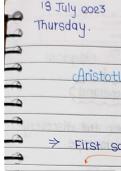 13 July 2023
Thursday.
Aristotl
⇒ First sc